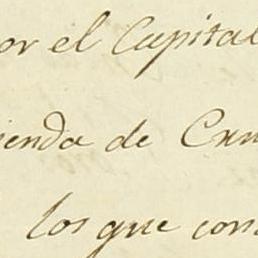 or el Capital
ienda de Cru
los que cons